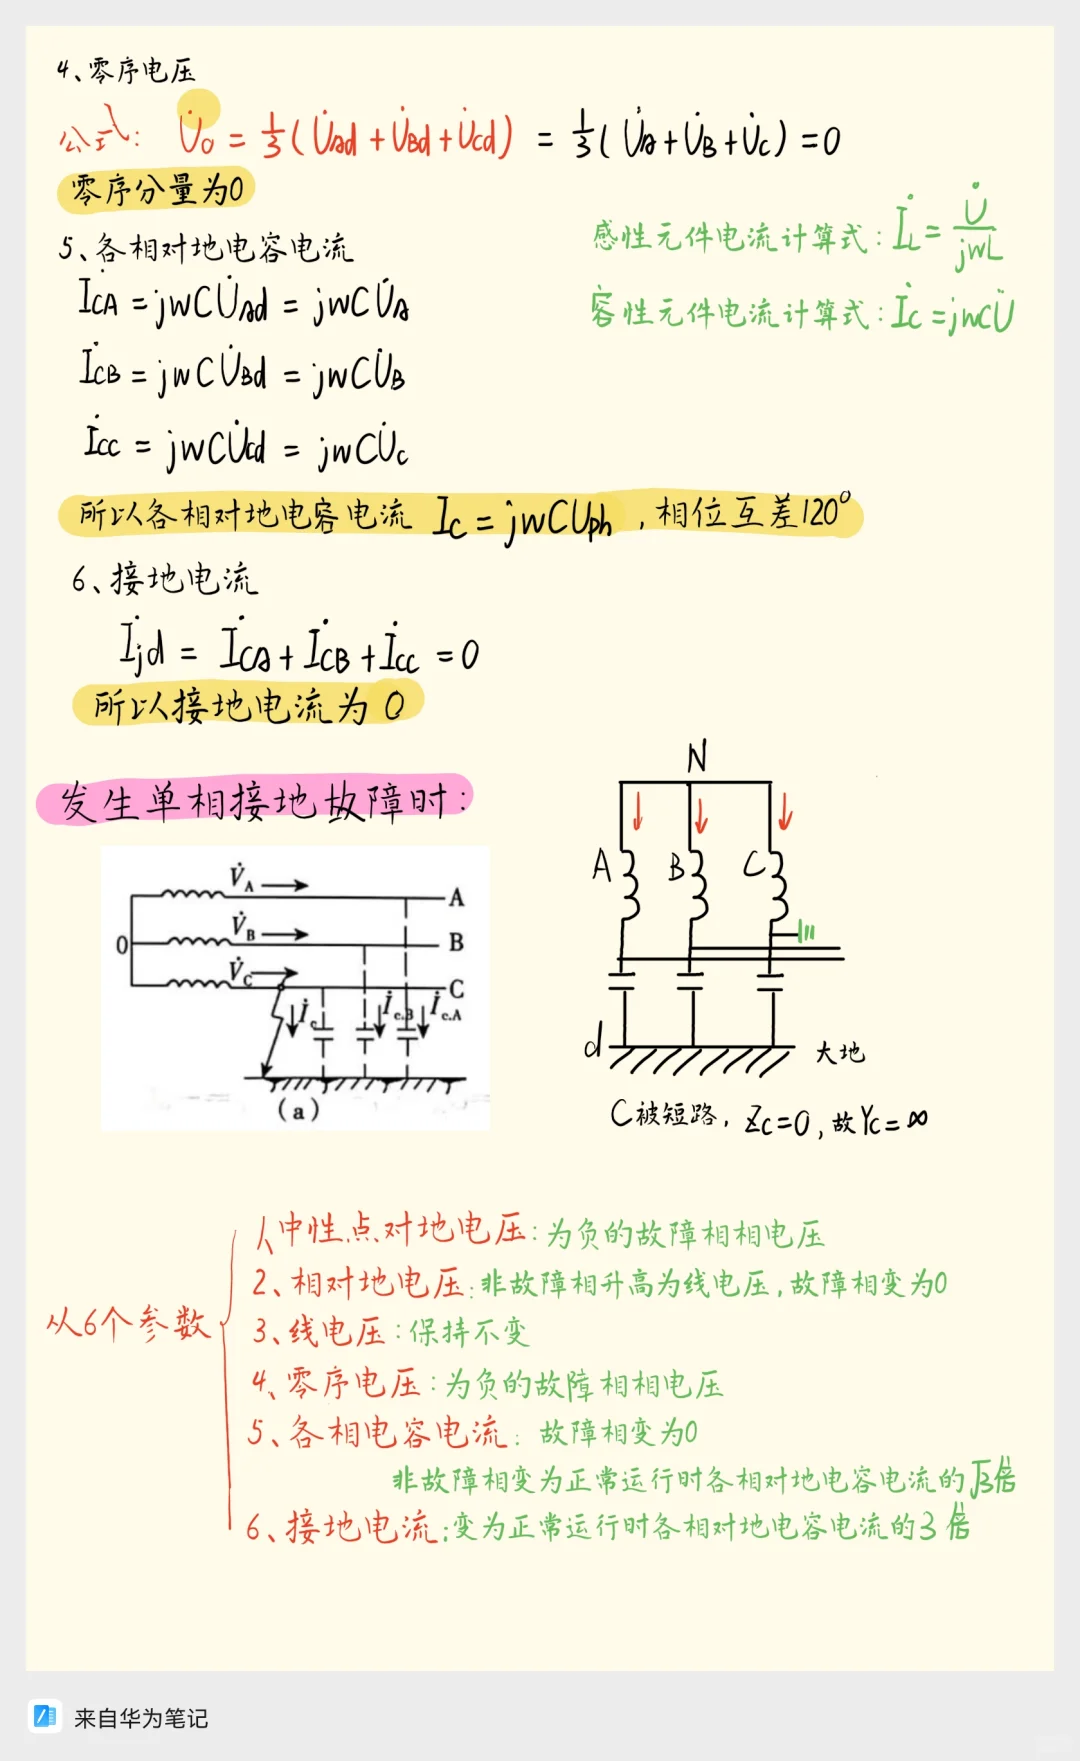 4、零序电压
公式: U̇₀ = 1/3(U̇Ad + U̇Bd + U̇cd) = 1/3(U̇A + U̇B + U̇C) = 0
零序分量为0
5、各相对地电容电流
感性元件电流计算式: İL = U̇/jwL
İCA = jwCU̇Ad = jwCU̇A
容性元件电流计算式: İc = jwCU̇
İCB = jwCU̇Bd = jwCU̇B
İCC = jwCU̇cd = jwCU̇c
所以各相对地电容电流 Ic = jwCUph ,相位互差120°
6、接地电流
İjd = İCA + İCB + İCC = 0
所以接地电流为0
发生单相接地故障时:
N
A B C
V̇A A
V̇B B
0
V̇C C
İc İc.B İc.A
(a)
d 大地
C被短路, Zc=0, 故Yc=∞
从6个参数
1、中性点对地电压: 为负的故障相相电压
2、相对地电压: 非故障相升高为线电压, 故障相变为0
3、线电压: 保持不变
4、零序电压: 为负的故障相相电压
5、各相电容电流: 故障相变为0
非故障相变为正常运行时各相对地电容电流的√3倍
6、接地电流: 变为正常运行时各相对地电容电流的3倍
来自华为笔记